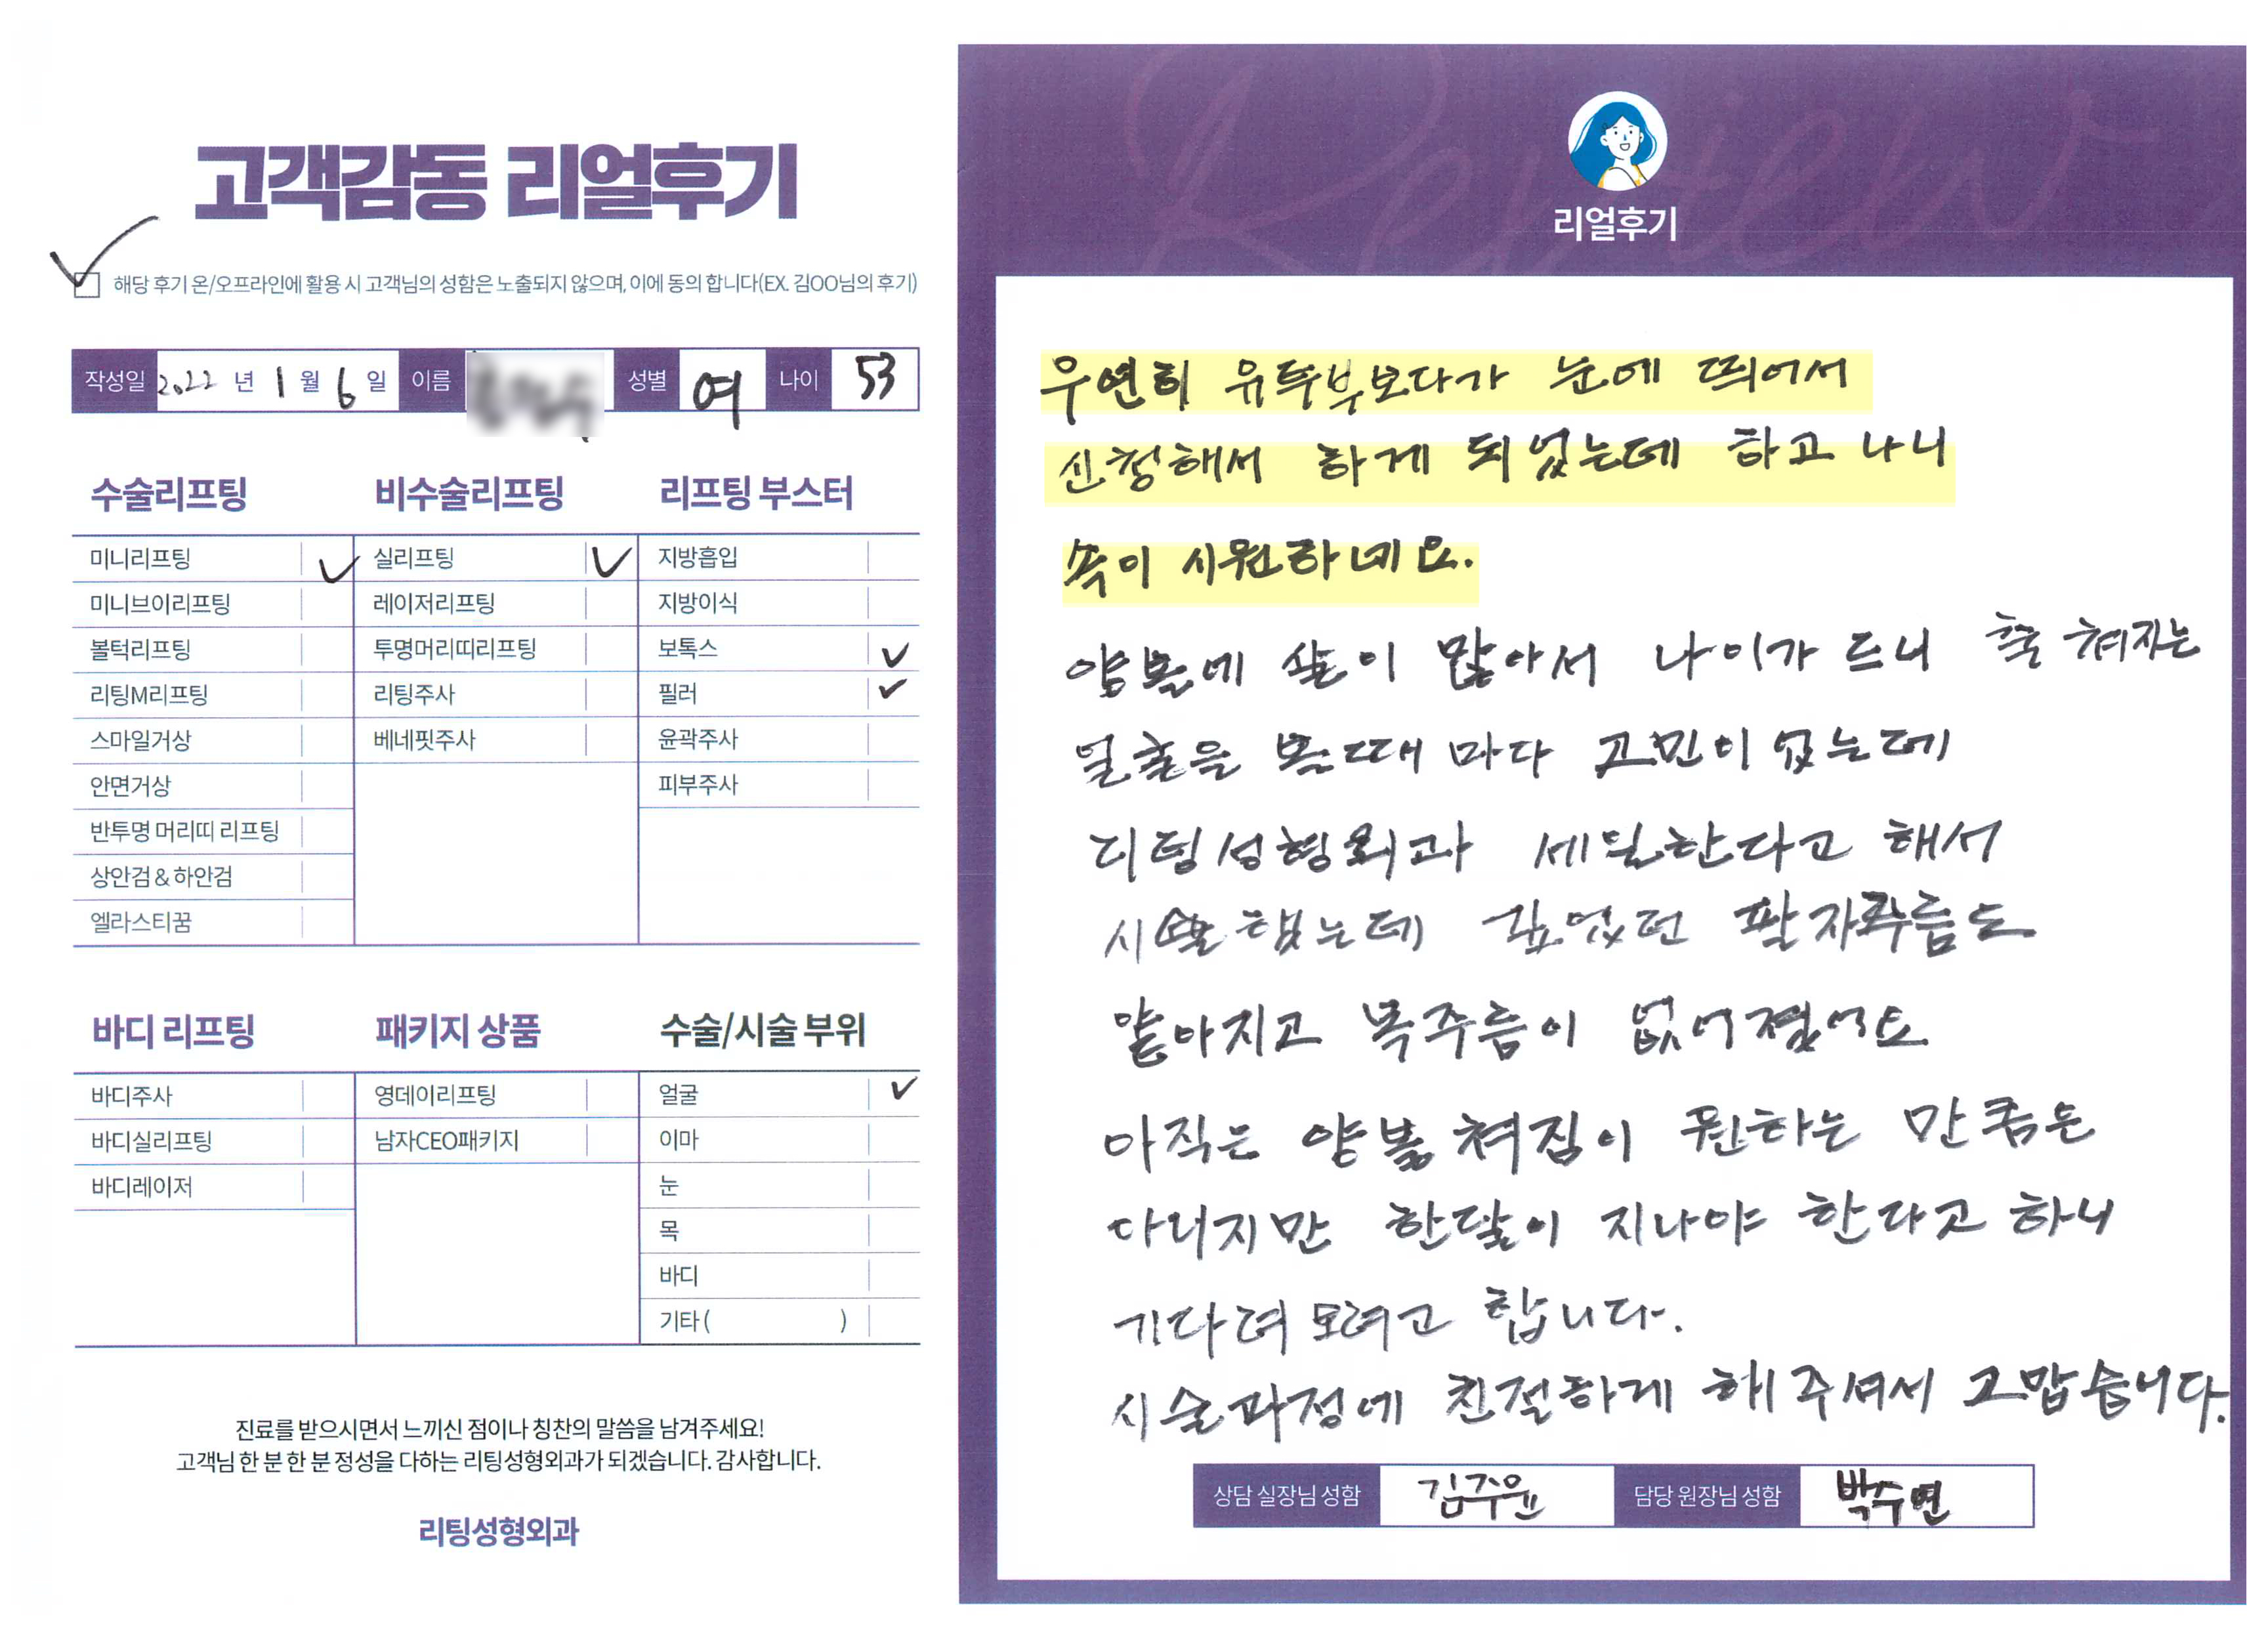 고객감동 리얼후기
해당 후기 온/오프라인에 활용 시 고객님의 성함은 노출되지 않으며, 이에 동의 합니다(EX. 김OO님의 후기)
작성일 2022 년 1 월 6 일 이름 성별 여 나이 53
수술리프팅 비수술리프팅 리프팅 부스터
미니리프팅 실리프팅 지방흡입
미니브이리프팅 레이저리프팅 지방이식
볼턱리프팅 투명머리띠리프팅 보톡스
리팅M리프팅 리팅주사 필러
스마일거상 베네핏주사 윤곽주사
안면거상 피부주사
반투명 머리띠 리프팅
상안검 & 하안검
엘라스티꿈
바디 리프팅 패키지 상품 수술/시술 부위
바디주사 영데이리프팅 얼굴
바디실리프팅 남자CEO패키지 이마
바디레이저 눈
목
바디
기타 ( )
진료를 받으시면서 느끼신 점이나 칭찬의 말씀을 남겨주세요!
고객님 한 분 한 분 정성을 다하는 리팅성형외과가 되겠습니다. 감사합니다.
리팅성형외과
Review
리얼후기
우연히 유투부보다가 눈에 띄어서
신청해서 하게 되었는데 하고 나니
속이 시원하네요.
양볼에 살이 많아서 나이가 드니 축 쳐지는
얼굴을 볼때 마다 고민이 였는데
리팅성형외과 세일한다고 해서
시술했는데 깊었던 팔자주름도
얕아지고 목주름이 없어졌어요
아직은 양볼 쳐짐이 원하는 만큼은
아니지만 한달이 지나야 한다고 하니
기다려 보려고 합니다.
시술과정에 친절하게 해주셔서 고맙습니다.
상담 실장님 성함 김주윤 담당 원장님 성함 박수연